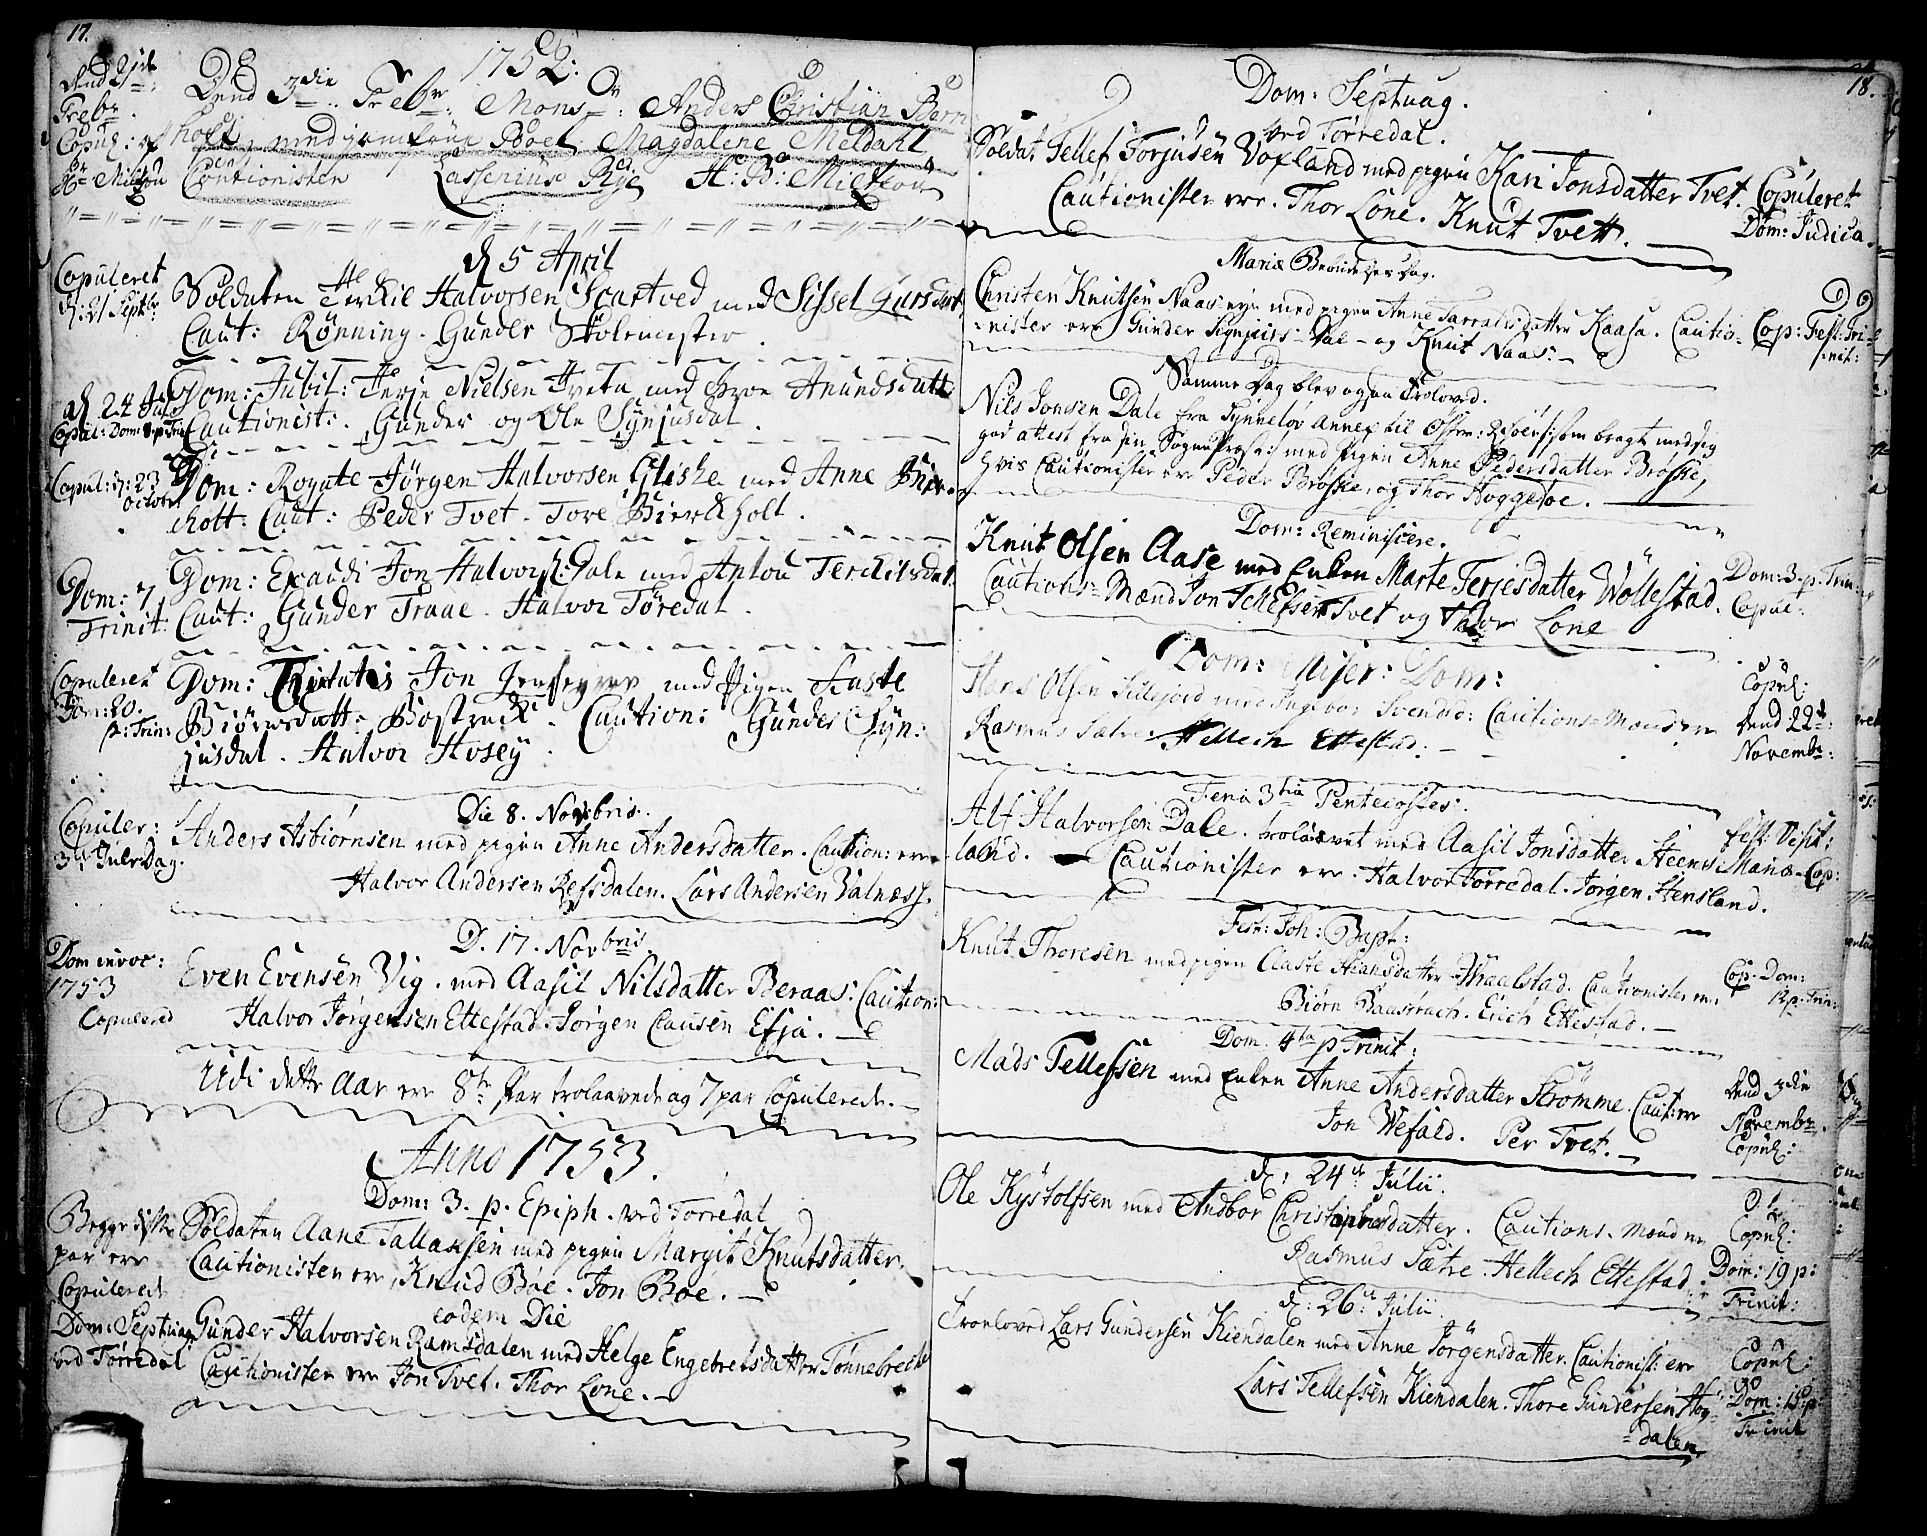 17.
1752:
Dend 21de
Febr.
Copul: af
Hr Miltzou
Dend 3die Febr. Monsr: Anders Christian Bern
holt, med jomfrue Bodel Magdalene Meldahl
Cautionisten Lasserius Rÿe H: B: Miltzou
d 5 April
Copuleret
d: 21 Septbr:
Soldaten Terkil Halvorsen Scartved med Sissel
Caut: Rønning. Gunder Skolemester.
d 24
Copul: Dom:
Dom: Jubil: Terje Nielsen Tveta med Anundsdatt:
Cautionist: Gunder og Ole Synjusdal.
Copul: d: 23
Octobr
Dom: Rogate Jörgen Halvorsen Gliske med Anne
kholt: Caut: Peder Tvet. Tore Bierckholt.
Dom: 7
Trinit:
Dom: Exaudi Jon Halvors: Dale med Anlou Terckilsdat.
Caut: Gunder Traae. Halvor Töredal.
Copuleret
Dom: 20.
p: Trin:
Dom: Trinitatis Jon med Pigen Aaste
Biörnsdatt: Bostrack. Caution: Gunder Syn:
jusdal. Halvor Hosey.
Die 8. Novbris.
Copuler:
3die Juledag.
Anders Asbiörnsen med pigen Anne Andersdatter. Caution: ere
Halvor Andersen Refsdalen. Lars Andersen Valnæss.
D. 17. Novbris.
Dom invoc:
1753
Copulered
Even Evensen Vig. med Aasil Nilsdatter Beraas. Caution:
Halvor Jørgensen Ettestad. Jörgen Clausen Essa.
Udi dette Aar ere 8te Par trolaavede og 7 par Copulerede.
Anno 1753.
Dom: 3. p. Epiph. ved Torredal
Begge disse
par ere
Copulerede
Dom: Septuag
ved Törredal
Soldaten Aane Tallaksen med pigen Margit Knutsdatter.
Cautionister ere, Knud Böe. Jon Böe.
eodem Die
Gunder Halvorsen Ramsdalen med Helge Engebretsdatter Tönnebreck
Cautionister ere Jon Tvet. Thor Lone.
18.
Dom: Septuag.
ved Törredal.
Soldat. Tellef Torjusen Voxland med pigen Kari Jonsdatter Tvet.
Cautionister ere. Thor Lone. Knut Tvett.
Copuleret
Dom: Judica.
Mariæ Bebudelses Dag.
Christen Knutsen Naas-eye med pigen Anne datter Kaasa. Cautio-
nister ere Gunder Dal og Knut Naas.
Cop: Fest: Tri-
nit:
Samme Dag blev ogsaa Troloved.
Nils Jonsen Dale fra Annex til som bragte med sig
god attest fra sin Sogne Præst: med pigen Anne Pedersdatter Brøske,
hvis Cautionister ere Peder Brøske, og Thor Hoggetoe.
Dom: Reminiscere.
Knut Olsen Aase med Enken Marte Terjesdatter Wöllestad.
Cautions-Mænd Jon Tellefsen Tvet og Thor Lone
Dom: 3. p. Trin:
Copul:
Dom: Miser: Dom:
Hans Olsen med Ingebor Svendsd: Cautions-Mænd ere
Rasmus Sætre Hellech Ettestad.
Copul:
dend 22de
Novembr:
Feria 3tia Pentecostes.
Alf Halvorsen Dale. trolaavet med Aasil Jonsdatter Steens
land. Cautionister ere. Halvor Törredal. Jörgen Hensland.
Fest: Visit:
Mariæ Cop:
Fest: Joh: Bapt:
Knut Thoresen med pigen Aaste Hansdatter Cautionister ere
Biörn Baastrach. Erich Ettestad.
Cop. Dom:
12 p. Trin:
Dom. 4ta p Trinit:
Mads Tellefsen med Enken Anne Andersdatter Strömme. Caut: ere
Jon Wefald. Per Tvet.
dend 3die
Novembr.
Copul:
d: 24de Julii.
Ole Kystolfsen med Andbor Christophersdatter. Cautions-Mænd ere
Rasmus Sætre. Hellech Ettestad.
Copul:
Dom: 19 p:
Trinit:
d: 26de Julii
Troeloved Lars Gundersen Kiendalen med Anne Jörgensdatter. Cautionist: ere
Lars Tellefsen Kiendalen. Thore Gundersen Høg-
dalen.
Copul:
Dom: 15 p:
Trinit